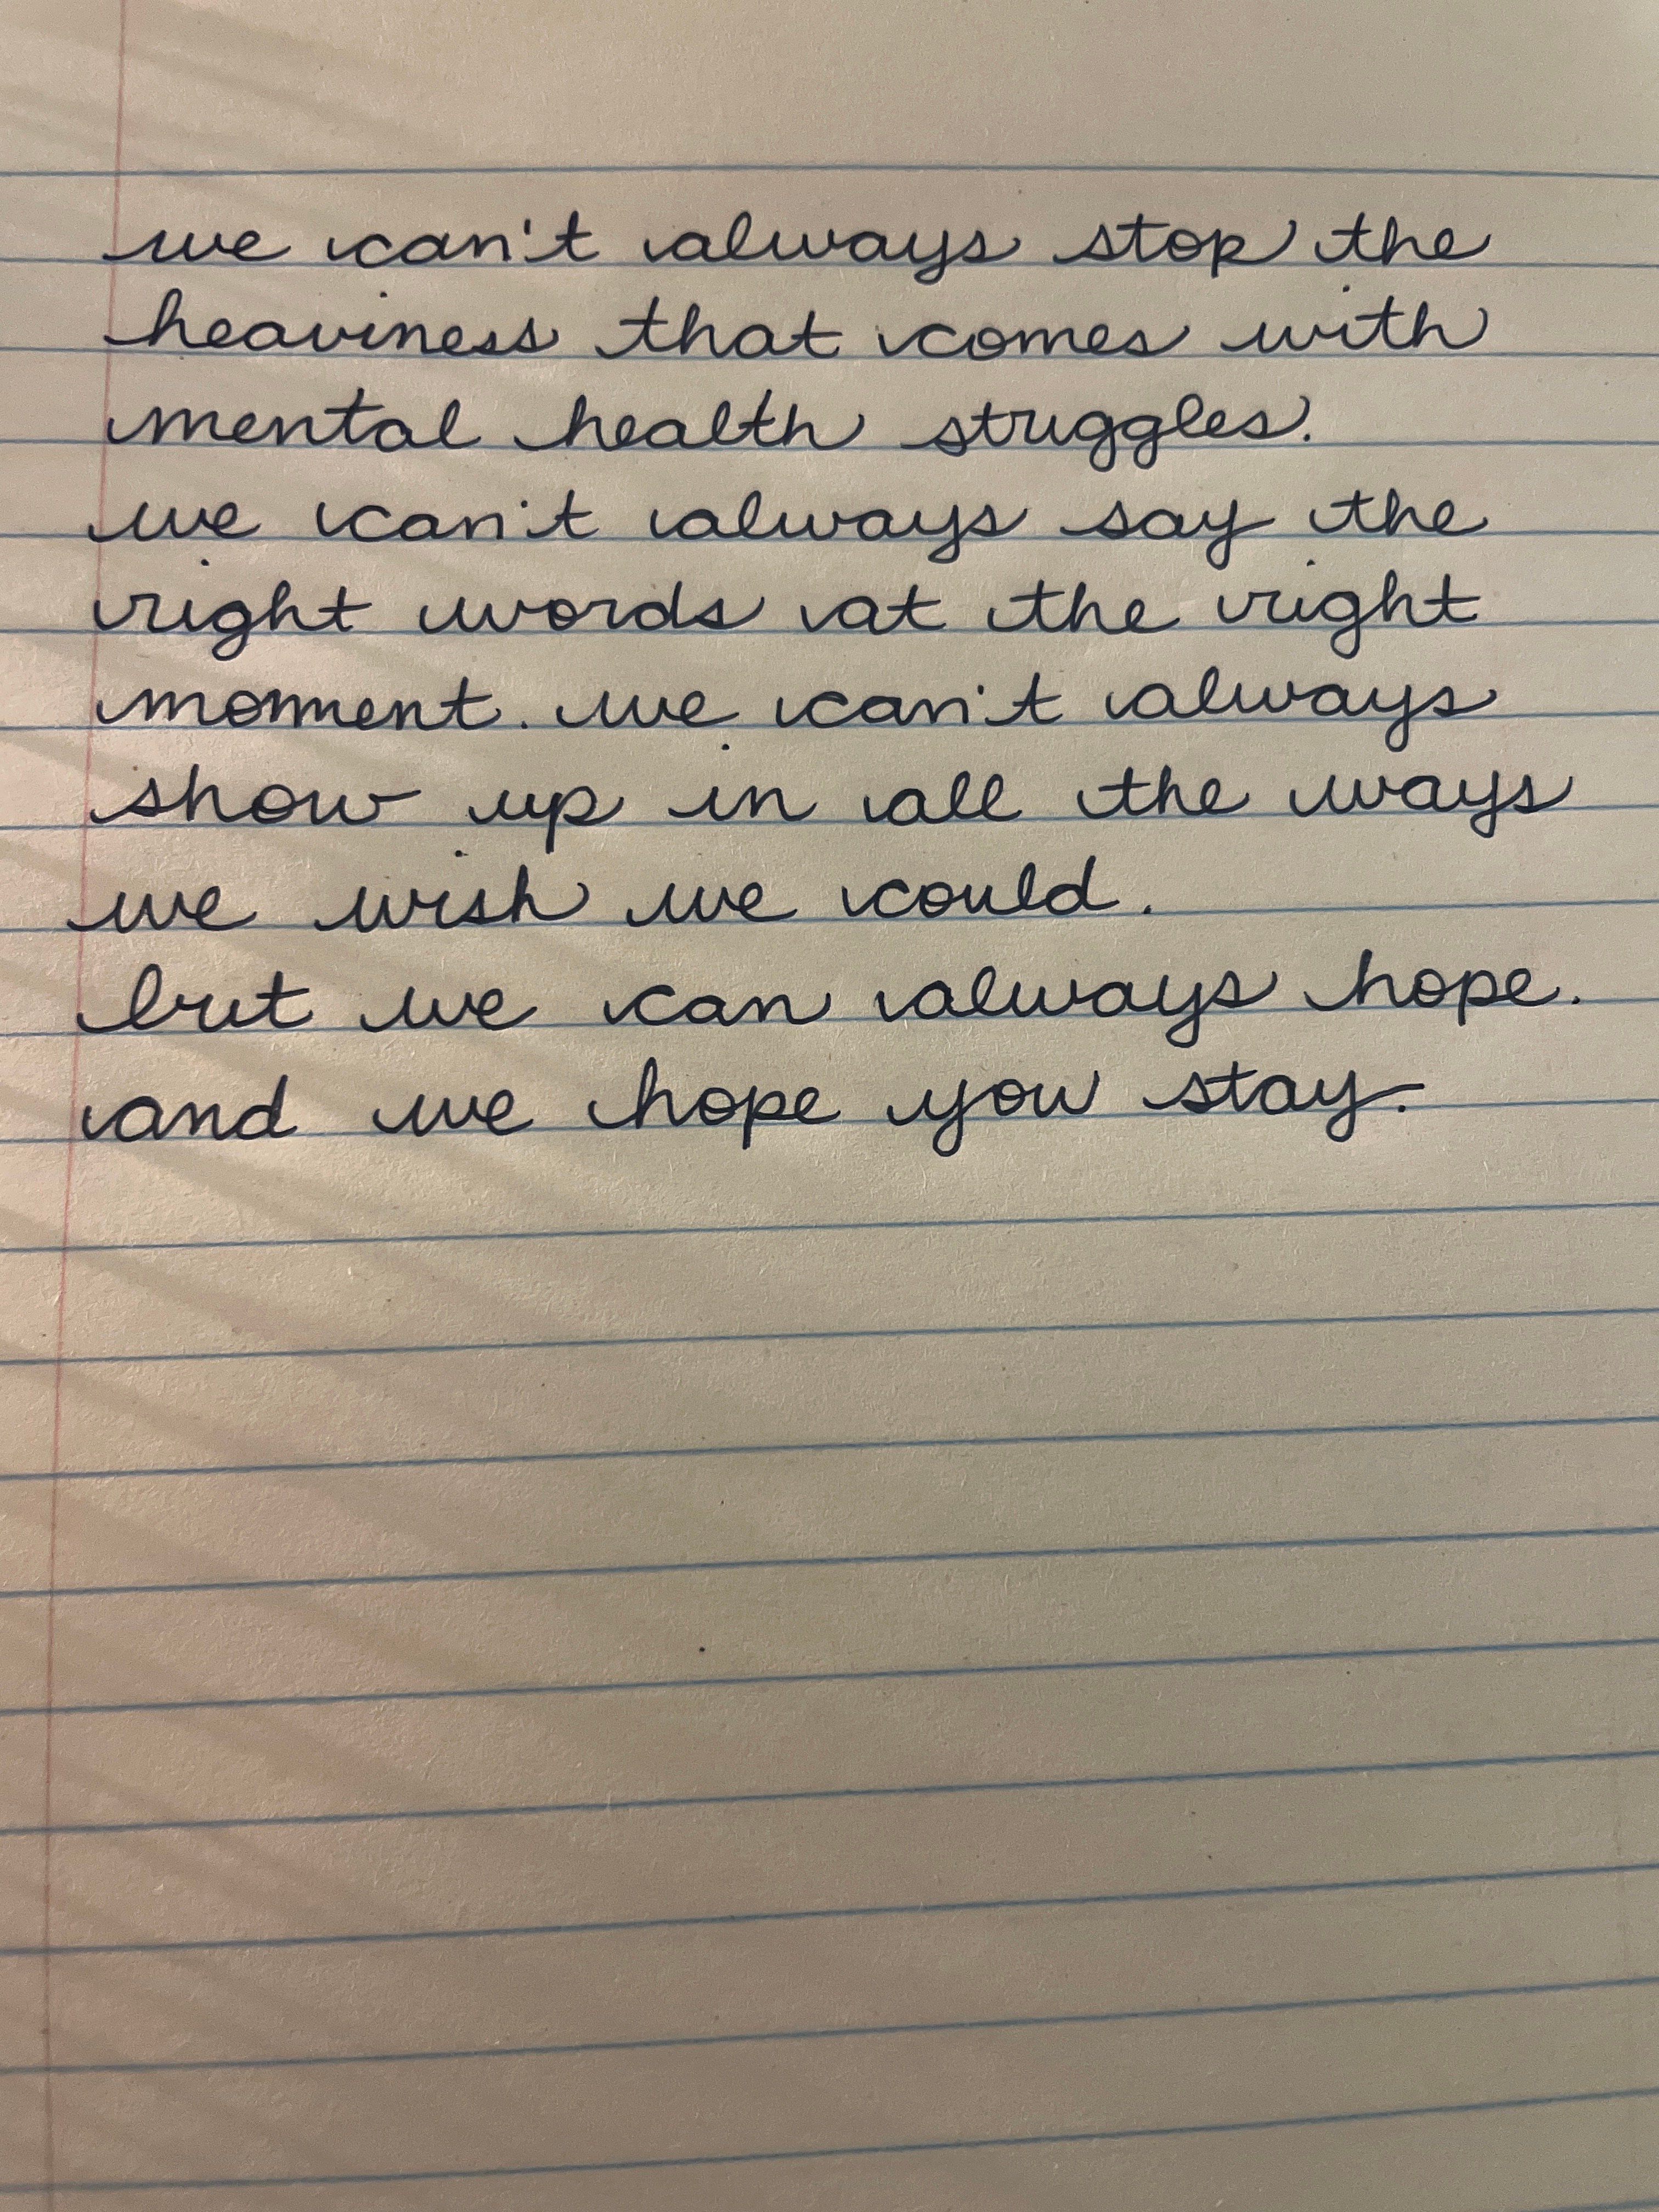 we can't always stop the
heaviness that comes with
mental health struggles.
we can't always say the
right words at the right
moment. we can't always
show up in all the ways
we wish we could.
but we can always hope.
and we hope you stay.